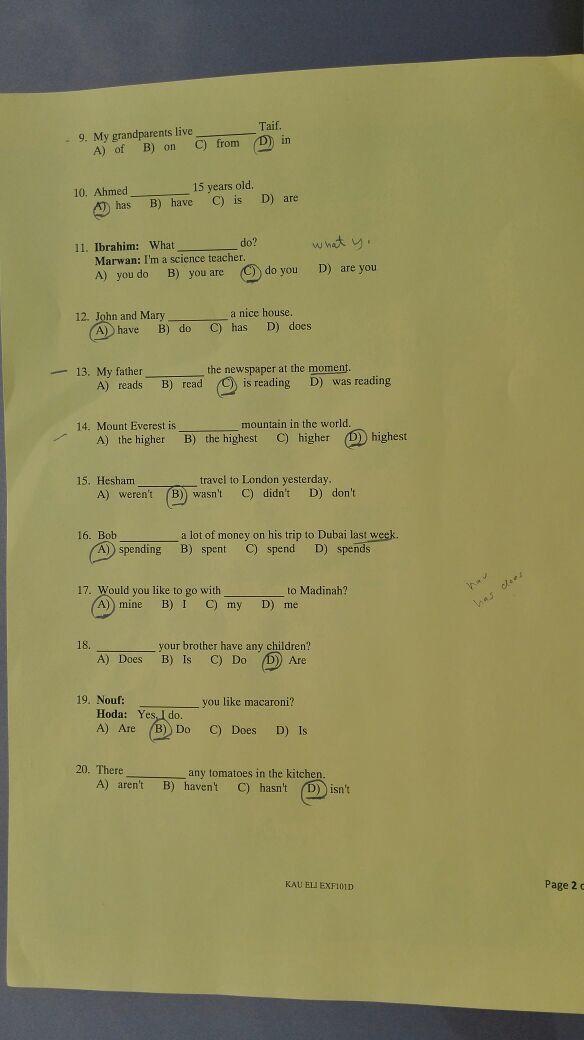 9. My grandparents live __________ Taif.
A) of B) on C) from D) in
10. Ahmed __________ 15 years old.
A) has B) have C) is D) are
11. Ibrahim: What __________ do? what y.
Marwan: I'm a science teacher.
A) you do B) you are C) do you D) are you
12. John and Mary __________ a nice house.
A) have B) do C) has D) does
13. My father __________ the newspaper at the moment.
A) reads B) read C) is reading D) was reading
14. Mount Everest is __________ mountain in the world.
A) the higher B) the highest C) higher D) highest
15. Hesham __________ travel to London yesterday.
A) weren't B) wasn't C) didn't D) don't
16. Bob __________ a lot of money on his trip to Dubai last week.
A) spending B) spent C) spend D) spends
17. Would you like to go with __________ to Madinah?
A) mine B) I C) my D) me
has does
18. __________ your brother have any children?
A) Does B) Is C) Do D) Are
19. Nouf: __________ you like macaroni?
Hoda: Yes, I do.
A) Are B) Do C) Does D) Is
20. There __________ any tomatoes in the kitchen.
A) aren't B) haven't C) hasn't D) isn't
KAU ELI EXF101D
Page 2